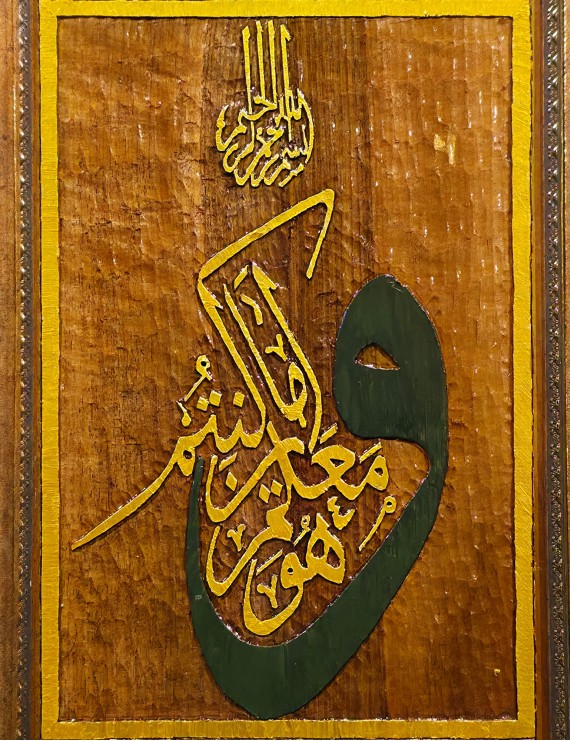 بسم الله الرحمن الرحيم
وَهُوَ مَعَكُمْ أَيْنَ مَا كُنْتُمْ